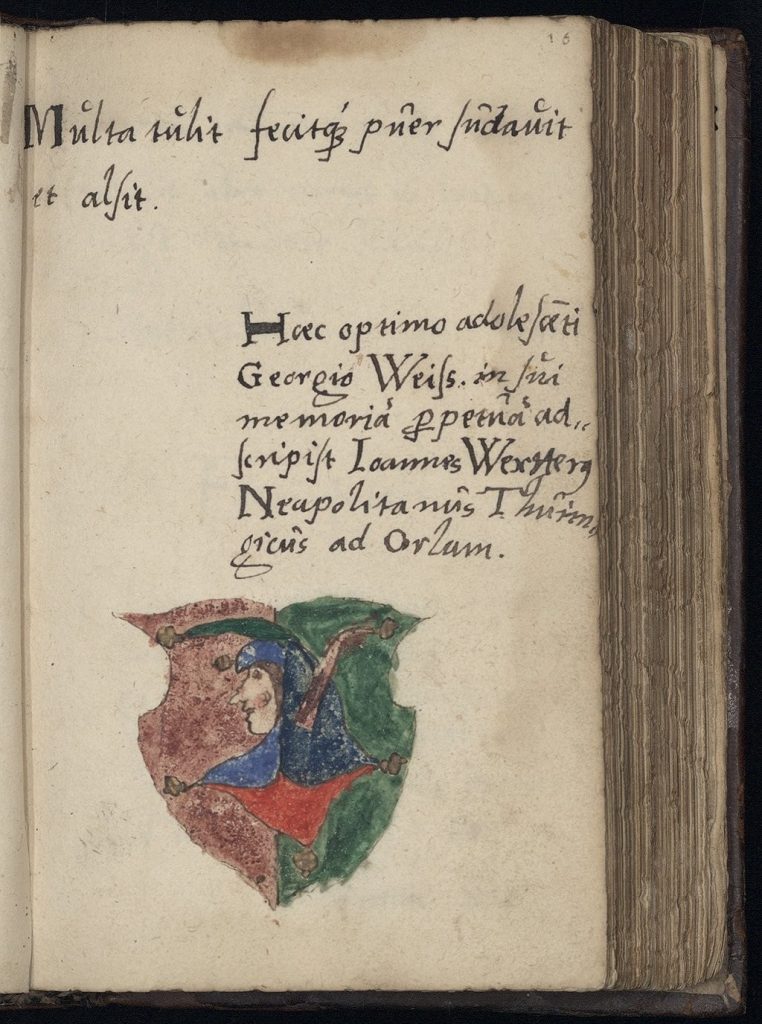 16
Multa tulit fecitq́ꝫ puer sudauit
et alsit.
Haec optimo adolescẽti
Georgio Weiss. in sui
memoriã ꝑpetuã ad„
scripsit Ioannes
Neapolitanus Thurin„
gicus ad Orlam.